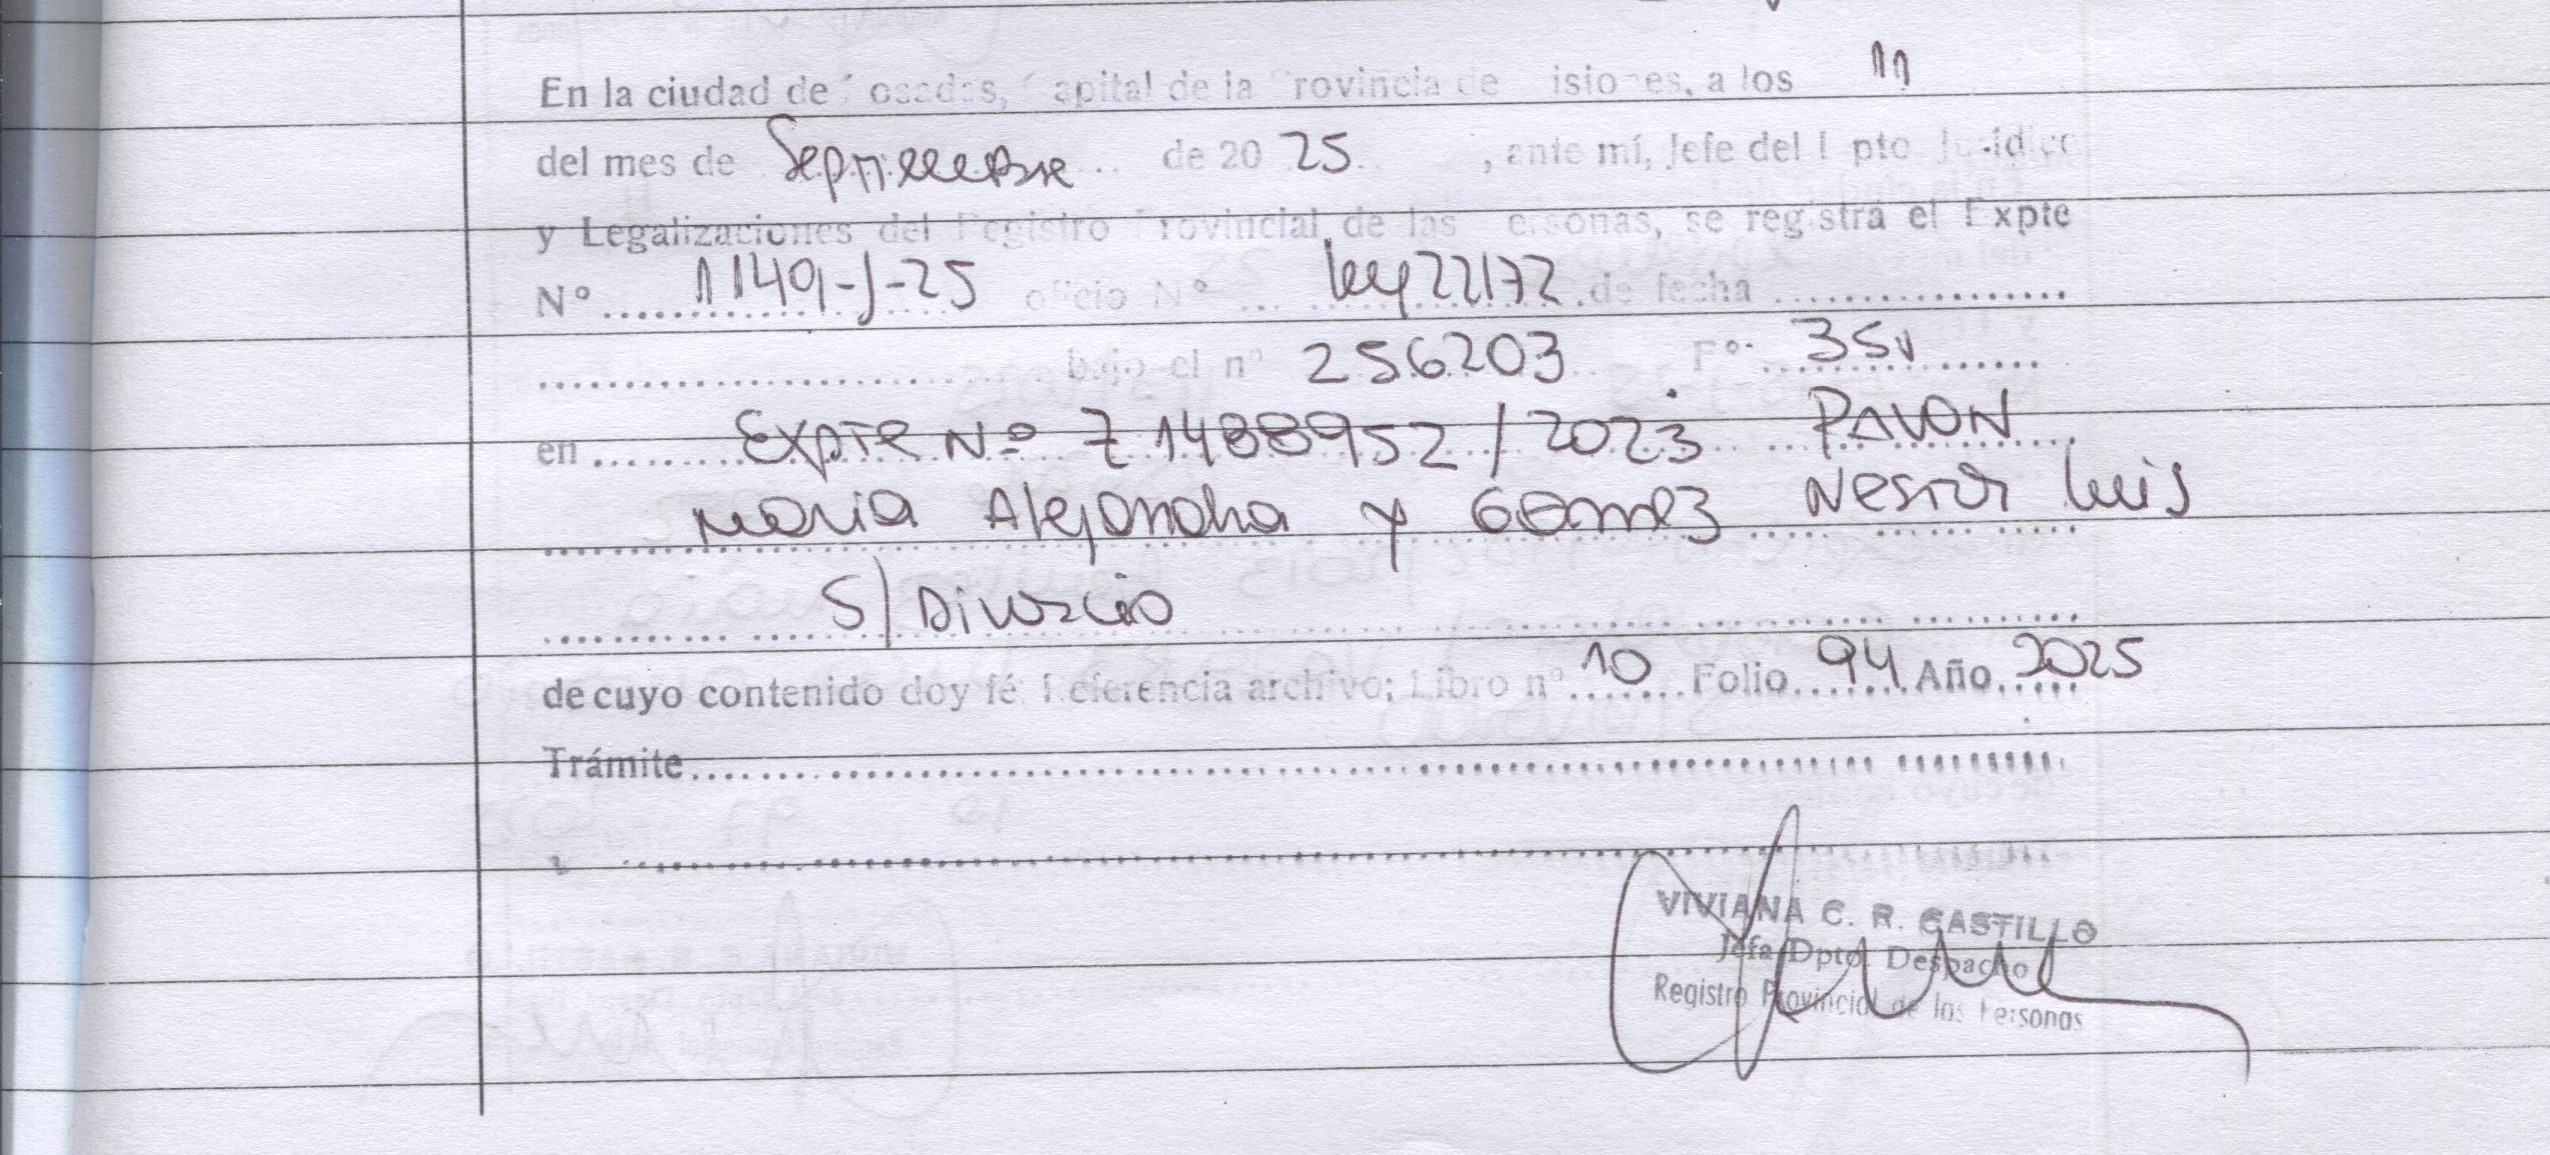 En la ciudad de Posadas, Capital de la Provincia de Misiones, a los 11
del mes de Septiembre de 20 25 , ante mí, Jefe del Dpto Jurídico
y Legalizaciones del Registro Provincial de las Personas, se registrá el Expte
Nº 1149-J-25 oficio Nº Ley 22172 de fecha
bajo el nº 256203 Fº: 35v
en Expte Nº 71488952/2023 PAVON
Maria Alejandra y Gomez Nestor Luis
S/ Divorcio
de cuyo contenido doy fé Referencia archivo; Libro nº 10 Folio 94 Año 2025
Trámite
VIVIANA C. R. CASTILLO
Jefa Dpto. Despacho
Registro Provincial de las Personas